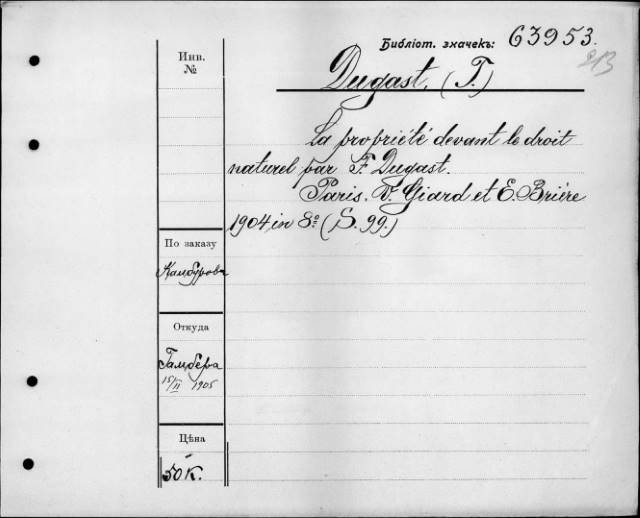 Библіот. значекъ: 63953.
Инв.
№
Dugast, (F.)
La propriété devant le droit
naturel par F. Dugast.
Paris. V. Giard et E. Brière
1904 in 8º (S. 99.)
По заказу
Камбурова
Откуда
Гамбера
15/II 1905
Цѣна
50 к.